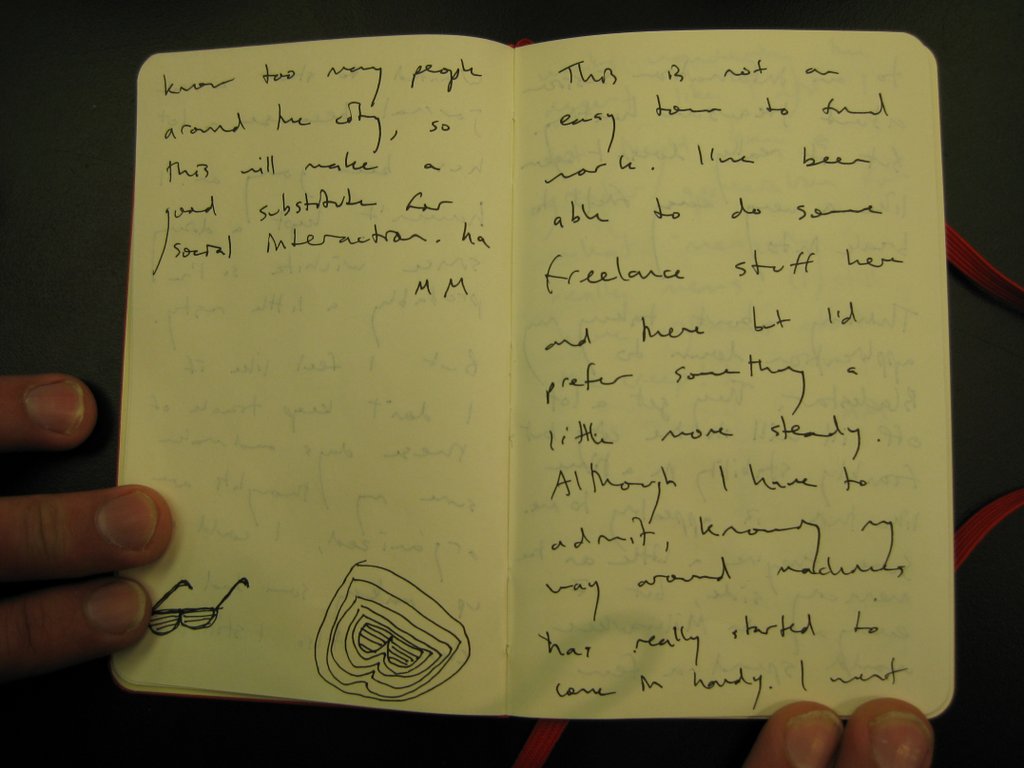 know too many people
around the city, so
this will make a
good substitute for
social interaction. ha
MM
This is not an
easy town to find
work. I've been
able to do some
freelance stuff here
and there but I'd
prefer something a
little more steady.
Although I have to
admit, knowing my
way around machines
has really started to
come in handy. I went